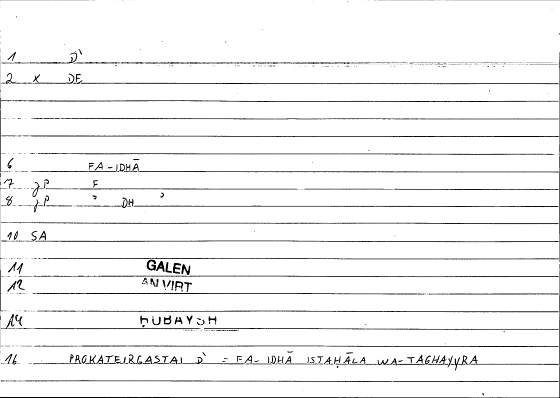 1 D'
2 x DE
6 FA-IDHĀ
7 gP F
8 gP ' DH '
10 SA
11 GALEN
12 AN VIRT
14 ḤUBAYSH
16 PROKATEIRGASTAI D' = FA-IDHĀ ISTAḤĀLA WA-TAGHAYYRA